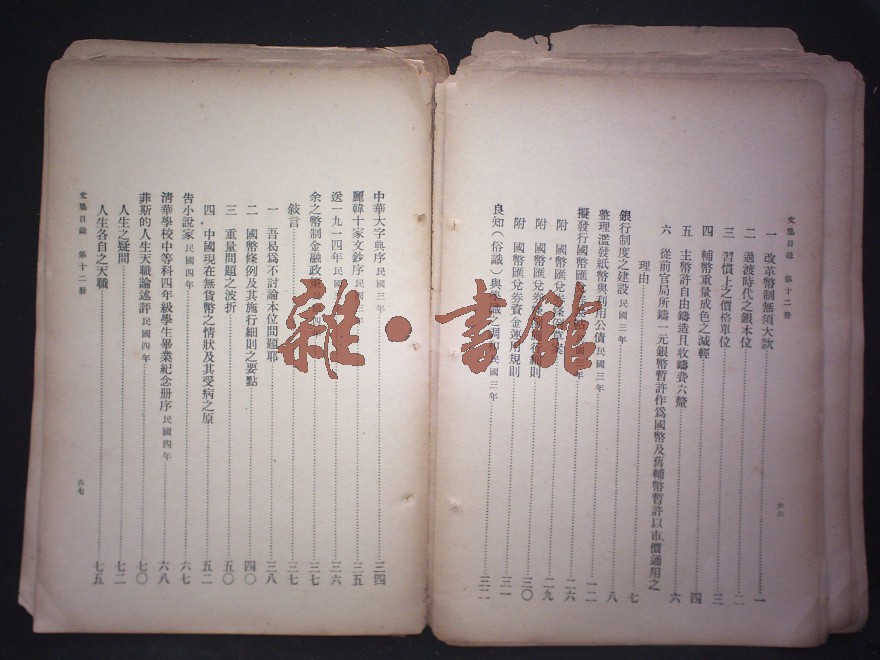 文集目錄 第十二冊
一 改革幣制無須大款 一
二 過渡時代之銀本位 二
三 習慣上之價格單位 三
四 輔幣重量成色之減輕 四
五 主幣許自由鑄造且收鑄費六釐 六
六 從前官局所鑄一元銀幣暫許作爲國幣及舊輔幣暫許以市價通用之
理由 七
銀行制度之建設民國三年 八
整理濫發紙幣與利用公債民國三年 一二
擬發行國幣匯兌 年 二六
附 國幣匯兌券 二九
附 國幣匯兌券 細則 三〇
附 國幣匯兌券資金運用規則 三一
良知(俗識)與 民國三年 三二
六六
中華大字典序民國三年 三四
麗韓十家文鈔序民國 三五
送一九一四年民國 三六
余之幣制金融政策 三七
敍言 三七
一 吾曷爲不討論本位問題耶 三八
二 國幣條例及其施行細則之要點 四〇
三 重量問題之波折 五〇
四 中國現在無貨幣之情狀及其受病之原 五二
告小說家民國四年 六七
清華學校中等科四年級學生畢業紀念册序民國四年 六八
菲斯的人生天職論述評民國四年 七〇
人生之疑問 七二
人生各自之天職 七五
文集目錄 第十二冊
六七
雜·書館